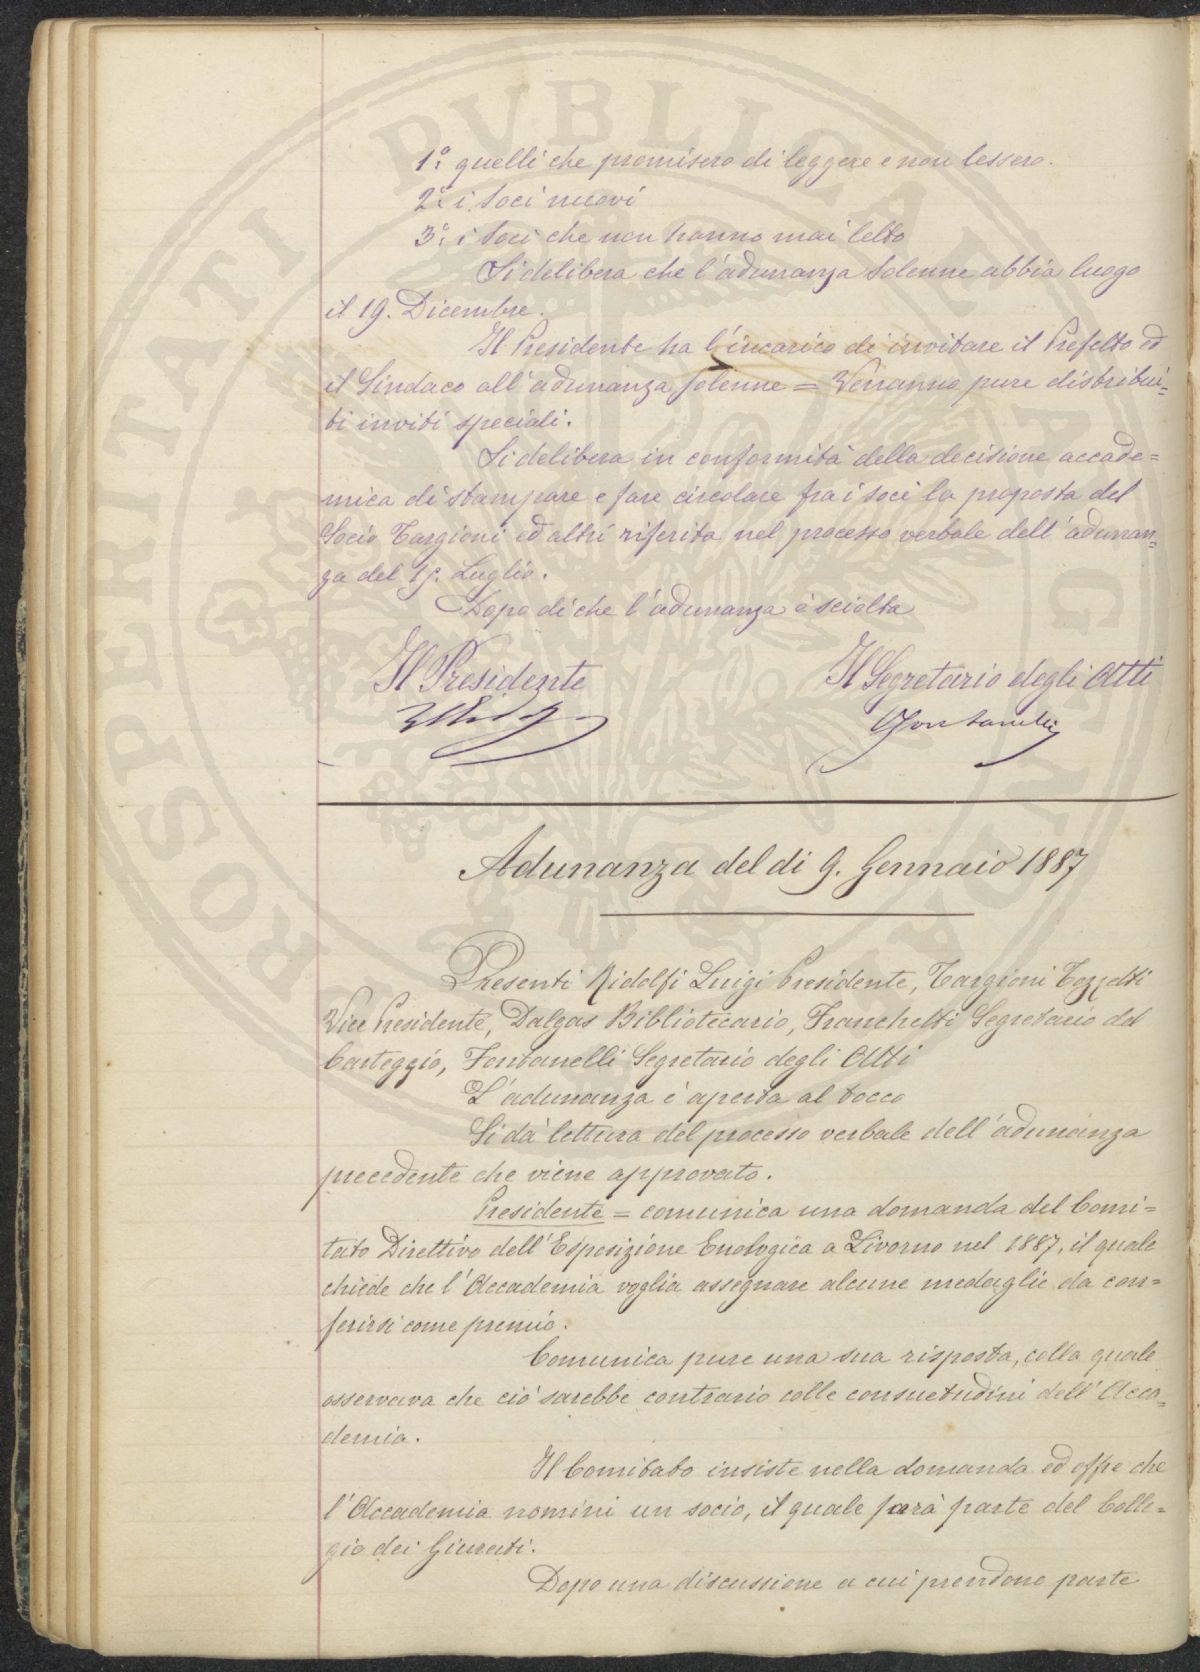 1.º quelli che promisero di leggere e non lessero.
2.º i Soci nuovi
3.º i Soci che non hanno mai letto
Si delibera che l'adunanza Solenne abbia luogo
il 19. Dicembre.
Il Presidente ha l'incarico di invitare il Prefetto ed
il Sindaco all'adunanza solenne = Verranno pure distribui=
ti inviti speciali.
Si delibera in conformità della decisione accade=
mica di stampare e fare circolare fra i soci la proposta del
Socio Targioni ed altri riferita nel processo verbale dell'adunan=
za del Luglio.
Dopo di che l'adunanza è sciolta
Il Presidente
Il Segretario degli Atti
Fontanelli
Adunanza del di 9. Gennaio 1887
Presenti Ridolfi Luigi Presidente, Targioni Tozzetti
Vice Presidente, Dalgas Bibliotecario, Franchetti Segretario del
Carteggio, Fontanelli Segretario degli Atti
L'adunanza è aperta al tocco
Si da' lettura del processo verbale dell'adunanza
precedente che viene approvato.
Presidente = comunica una domanda del Comi=
tato Direttivo dell'Esposizione Enologica a Livorno nel 1887, il quale
chiede che l'Accademia voglia assegnare alcune medaglie da con=
ferirsi come premio.
Comunica pure una sua risposta, colla quale
osservava che ciò sarebbe contrario colle consuetudini dell'Acca=
demia.
Il Comitato insiste nella domanda ed offre che
l'Accademia nomini un socio, il quale farà parte del Colle=
gio dei Giurati.
Dopo una discussione a cui prendono parte
PROSPERITATI PVBLICAE AVGENDAE